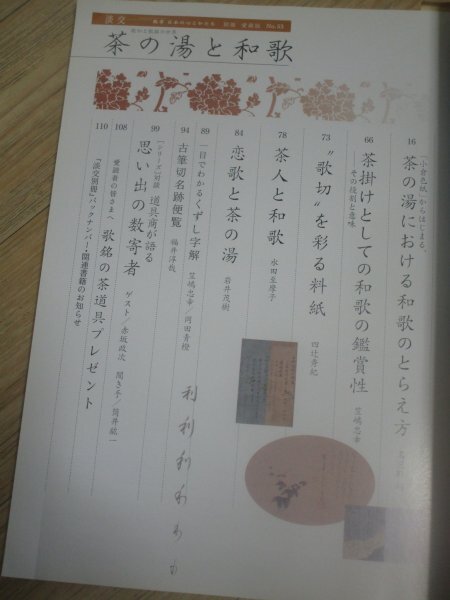 淡交
別冊 愛蔵版 No.53
茶の湯と和歌
16
「小倉色紙」からはじまる、
茶の湯における和歌のとらえ方
66
茶掛けとしての和歌の鑑賞性
その役割と意味
笠嶋忠幸
73
"歌切"を彩る料紙
四辻秀紀
78
茶人と和歌
永田至摩子
84
恋歌と茶の湯
岩井茂樹
89
一目でわかるくずし字解
笠嶋忠幸/岡田青橙
94
古筆切名跡便覧
福井淳哉
99
[シリーズ]対談 道具商が語る
思い出の数寄者
ゲスト/赤坂政次 聞き手/筒井紘一
108
愛読者の皆さまへ 歌銘の茶道具プレゼント
110
『淡交別冊』バックナンバー・関連書籍のお知らせ
利
利